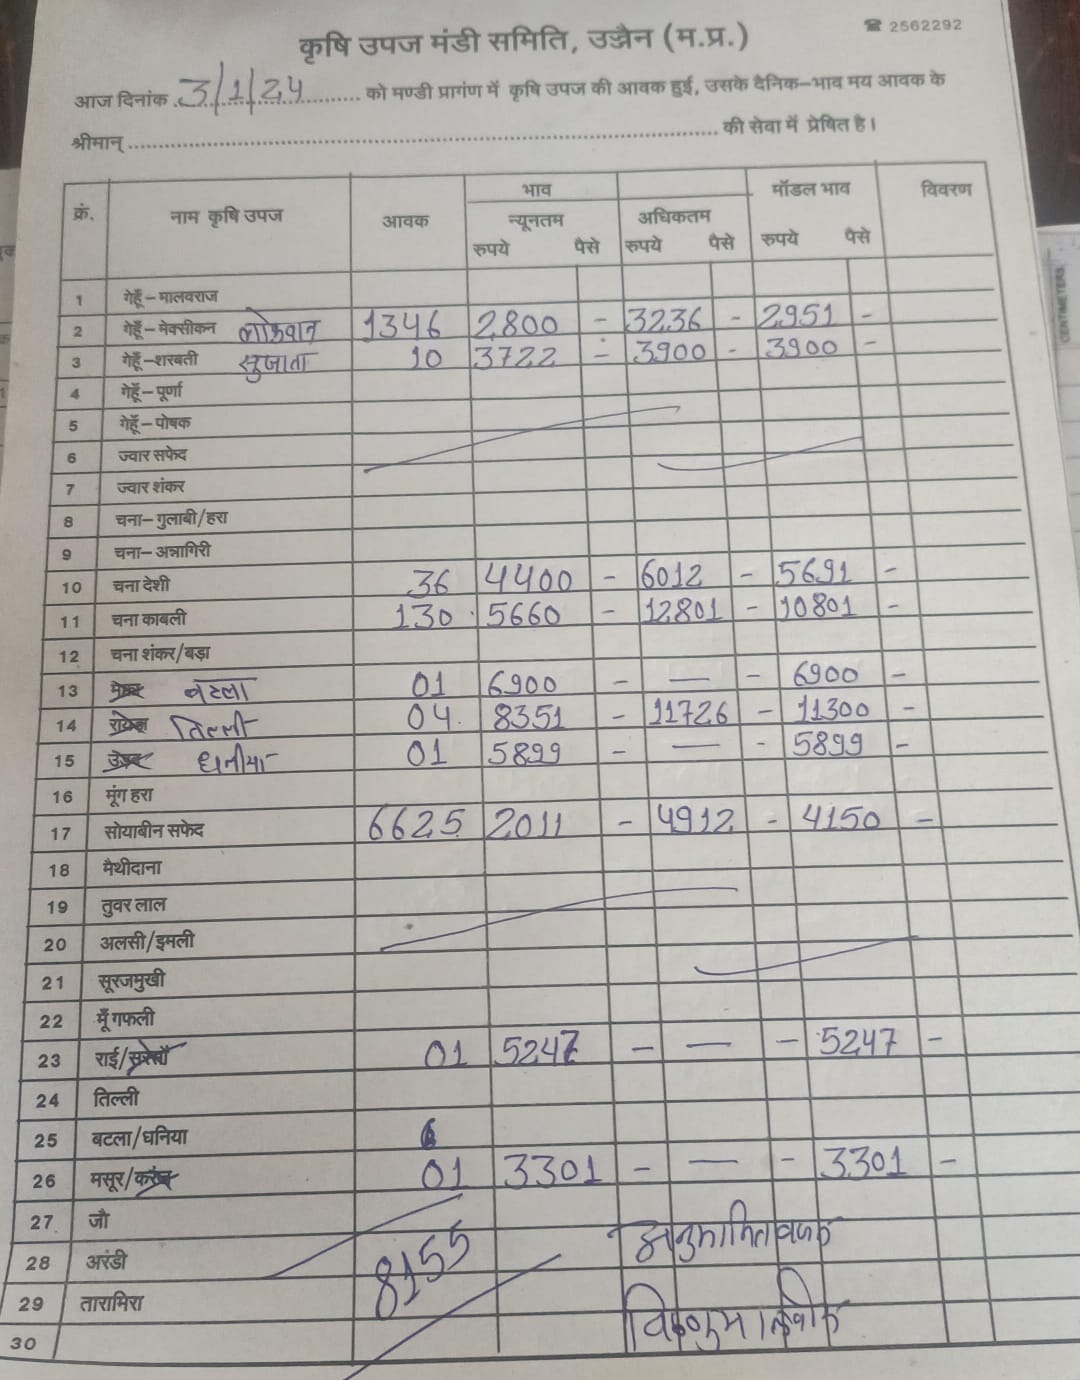 ☎ 2562292
कृषि उपज मंडी समिति, उज्जैन (म.प्र.)
आज दिनांक 3/1/24 को मण्डी प्रागंण में कृषि उपज की आवक हुई, उसके दैनिक-भाव मय आवक के
श्रीमान् .......... की सेवा में प्रेषित है।
क्रं. नाम कृषि उपज आवक भाव मॉडल भाव विवरण
न्यूनतम अधिकतम
रुपये पैसे रुपये पैसे रुपये पैसे
1 गेहूँ-मालवराज
2 गेहूँ-मेक्सीकन लोकवान 1346 2800 - 3236 - 2951 -
3 गेहूँ-शरबती सुजाता 10 3722 - 3900 - 3900 -
4 गेहूँ-पूर्णा
5 गेहूँ-पोषक
6 ज्वार सफेद
7 ज्वार शंकर
8 चना-गुलाबी/हरा
9 चना-अन्नागिरी
10 चना देशी 36 4400 - 6012 - 5691 -
11 चना काबली 130 5660 - 12801 - 10801 -
12 चना शंकर/बड़ा
13 बटला 01 6900 - — - 6900 -
14 तिल्ली 04 8351 - 11726 - 11300 -
15 धनीया 01 5899 - — - 5899 -
16 मूंग हरा
17 सोयाबीन सफेद 6625 2011 - 4912 - 4150 -
18 मैथीदाना
19 तुवर लाल
20 अलसी/इमली
21 सूरजमुखी
22 मूँगफली
23 राई/सरसों 01 5247 - — - 5247 -
24 तिल्ली
25 बटला/धनिया
26 मसूर/करंज 01 3301 - — - 3301 -
27 जौ
28 अरंडी 8155 अनुमानित वजन
29 तारामिरा
30
CENTIMETERS